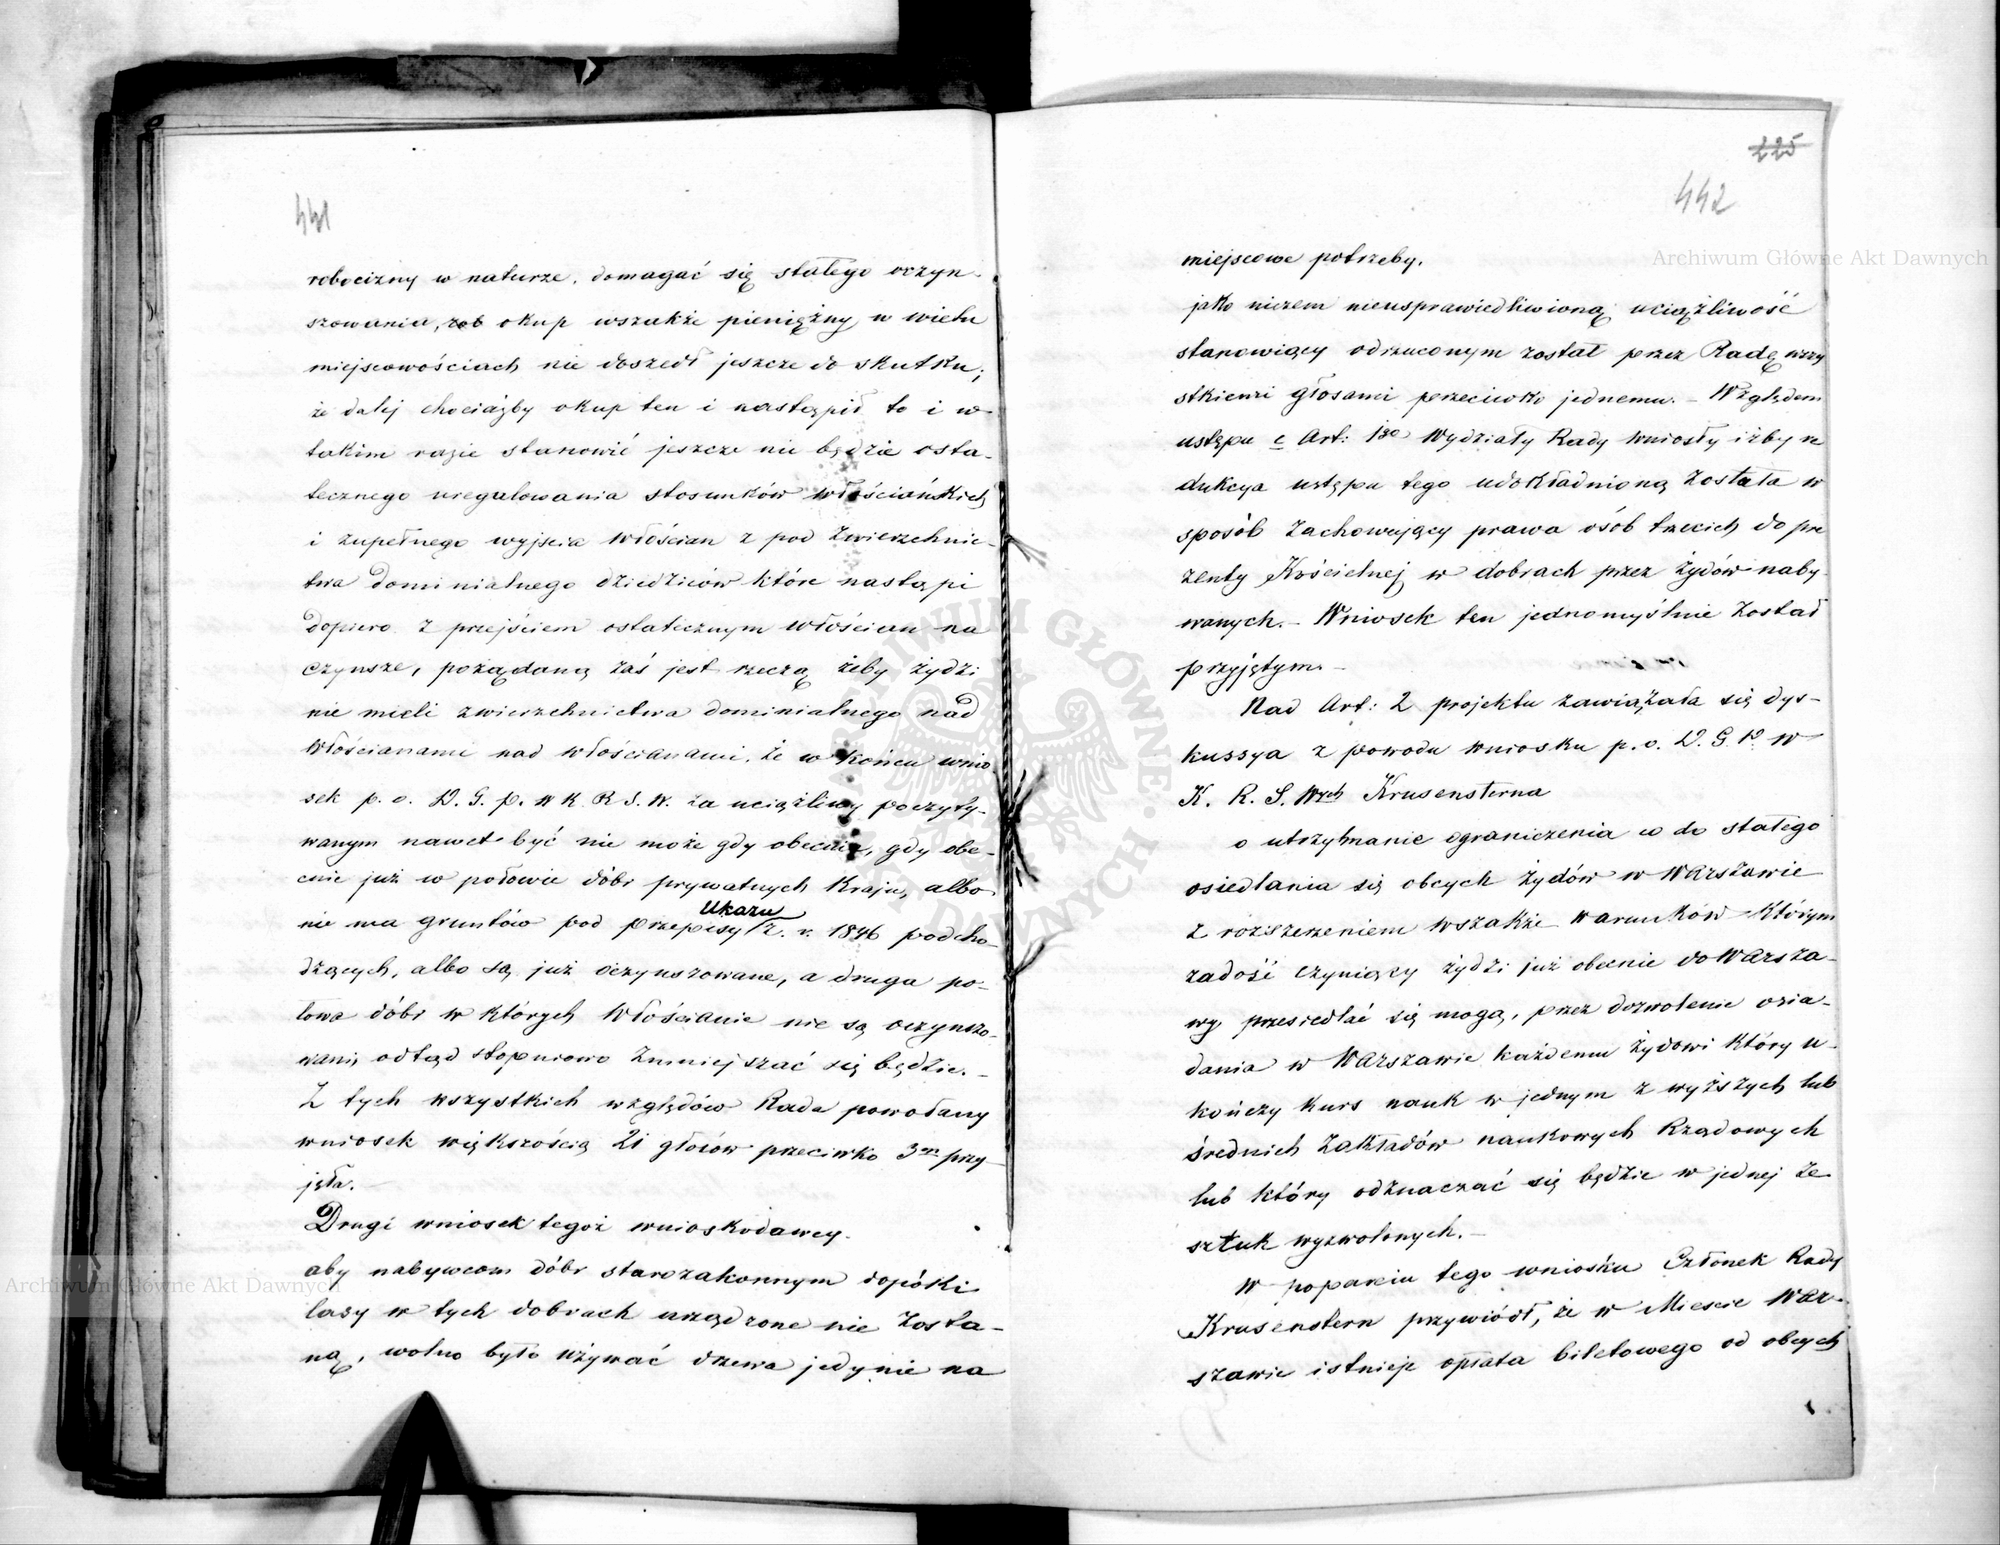 441
robocizny w naturze, domagać się stałego oczyn-
szowania, okup wszakże pieniężny w wielu
miejscowościach nie doszedł jeszcze do skutku;
że dalej chociażby okup ten i nastąpił to i w
takim razie stanowić jeszcze nie będzie osta-
tecznego uregulowania stosunków włościańskich
i zupełnego wyjścia włościan z pod zwierzchnic-
twa dominialnego dziedziców które nastąpi
dopiero z przejściem ostatecznym włościan na
czynsze, pożądaną zaś jest rzeczą żeby żydzi
nie mieli zwierzchnictwa dominialnego nad
włościanami nad włościanami. że w końcu wnio
sek p. o. D. G. p. w K. R. S. W. za uciążliwy poczyty-
wanym nawet być nie może gdy obecnie, gdy obe-
cnie już w połowie dóbr prywatnych Kraju, albo
nie ma gruntów pod przepisy Ukazu z r. 1846 podcho-
dzących, albo są już oczynszowane, a druga po-
łowa dóbr w których Włościanie nie są oczynszo-
wani, odtąd stopniowo zmniejszać się będzie. -
Z tych wszystkich względów Rada powołany
wniosek większością 21 głosów przeciwko 3m przy
jęła. -
Drugi wniosek tegoż wnioskodawcy.
aby nabywcom dóbr starozakonnym dopóki
lasy w tych dobrach urządzone nie zosta-
ną, wolno było używać drzewa jedynie na
225
442
miejscowe potrzeby.
jako niczem nieusprawiedliwioną uciążliwość
stanowiący odrzuconym został przez Radę wszy
stkiemi głosami przeciwko jednemu. - Względem
ustępu c Art: 1go Wydziały Rady wniosły iżby re
dukcya ustępu tego udokładnioną została w
sposób zachowujący prawa osób trzecich do pre
zenty Kościelnej w dobrach przez żydów naby-
wanych. - Wniosek ten jednomyślnie został
przyjętym. -
Nad Art: 2 projektu zawiązała się dys-
kussya z powodu wniosku p. o. D. G. P. w
K. R. S. Wych Krusensterna
o utrzymanie ograniczenia co do stałego
osiedlania się obcych żydów w Warszawie
z rozszerzeniem wszakże warunków którym
zadość czyniący żydzi już obecnie do Warsza-
wy przesiedlać się mogą, przez dozwolenie osia-
dania w Warszawie każdemu żydowi który u-
kończy kurs nauk w jednym z wyższych lub
średnich zakładów naukowych Rządowych
lub który odznaczać się będzie w jednej ze
sztuk wyzwolonych. -
W poparciu tego wniosku Członek Rady
Krusenstern przywiódł, że w Mieście War-
szawie istnieje opłata biletowego od obcych
Archiwum Główne Akt Dawnych
Archiwum Główne Akt Dawnych
ARCHIWUM GŁÓWNE AKT DAWNYCH